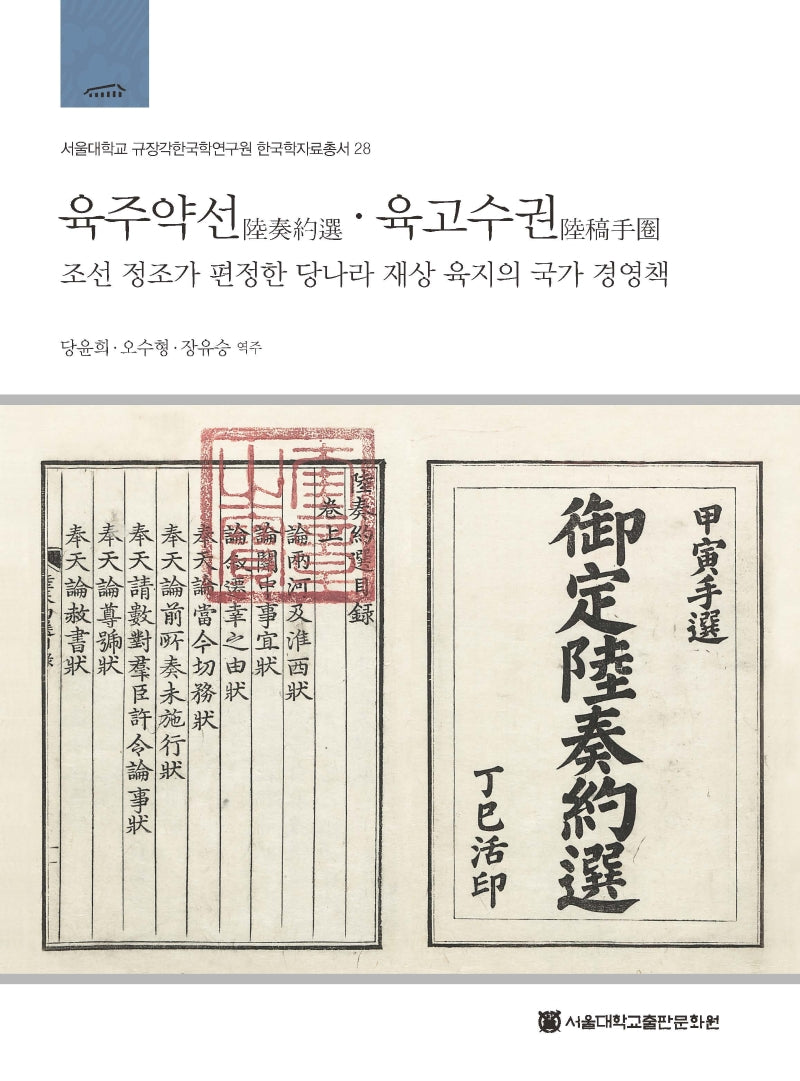 서울대학교 규장각한국학연구원 한국학자료총서 28
육주약선陸奏約選 · 육고수권陸稿手圈
조선 정조가 편정한 당나라 재상 육지의 국가 경영책
당윤희 · 오수형 · 장유승 역주
甲寅手選
御定陸奏約選
丁巳活印
陸奏約選目録
卷上
論兩河及淮西狀
論關中事宜狀
論叙遷幸之由狀
奉天論當今切務狀
奉天論前所奏未施行狀
奉天請數對羣臣許令論事狀
奉天論尊號狀
奉天論赦書狀
서울대학교출판문화원